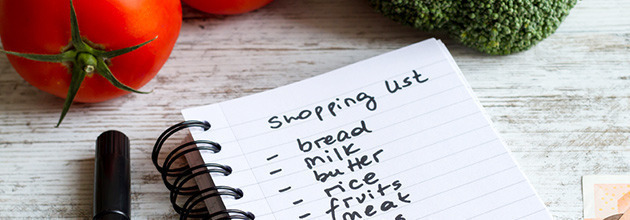 Shopping list
- bread
- milk
- butter
- rice
- fruits
- meat